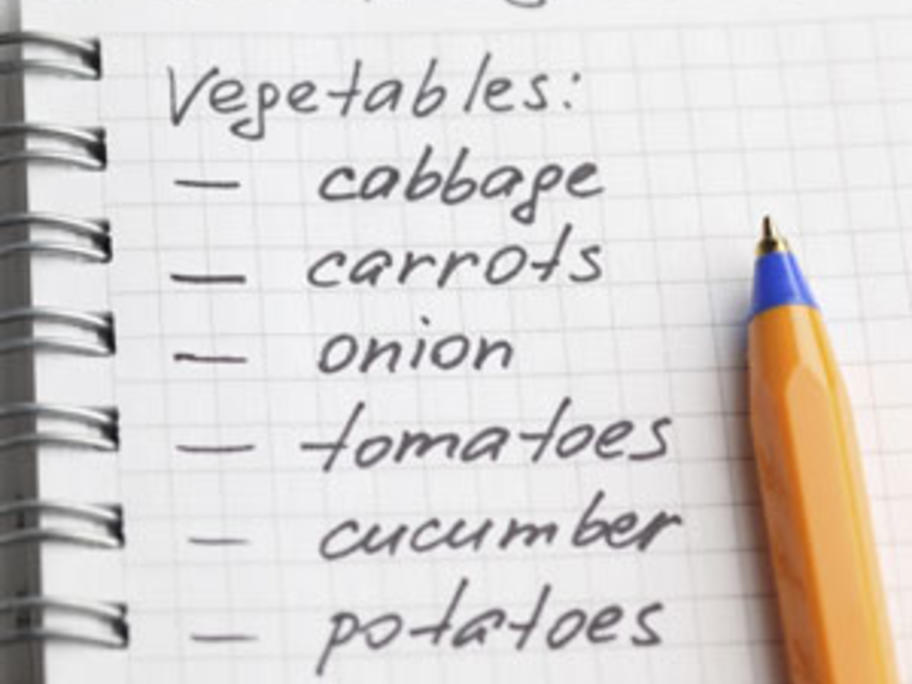 Vegetables:
— cabbage
— carrots
— onion
— tomatoes
— cucumber
— potatoes